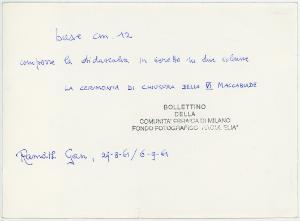 base cm. 12
comporre la didascalia in neretto su due colonne
LA CERIMONIA DI CHIUSURA DELLA VI MACCABIADE
BOLLETTINO
DELLA
COMUNITA' EBRAICA DI MILANO
FONDO FOTOGRAFICO
Ramàth Gan, 29-8-61 / 6-9-61